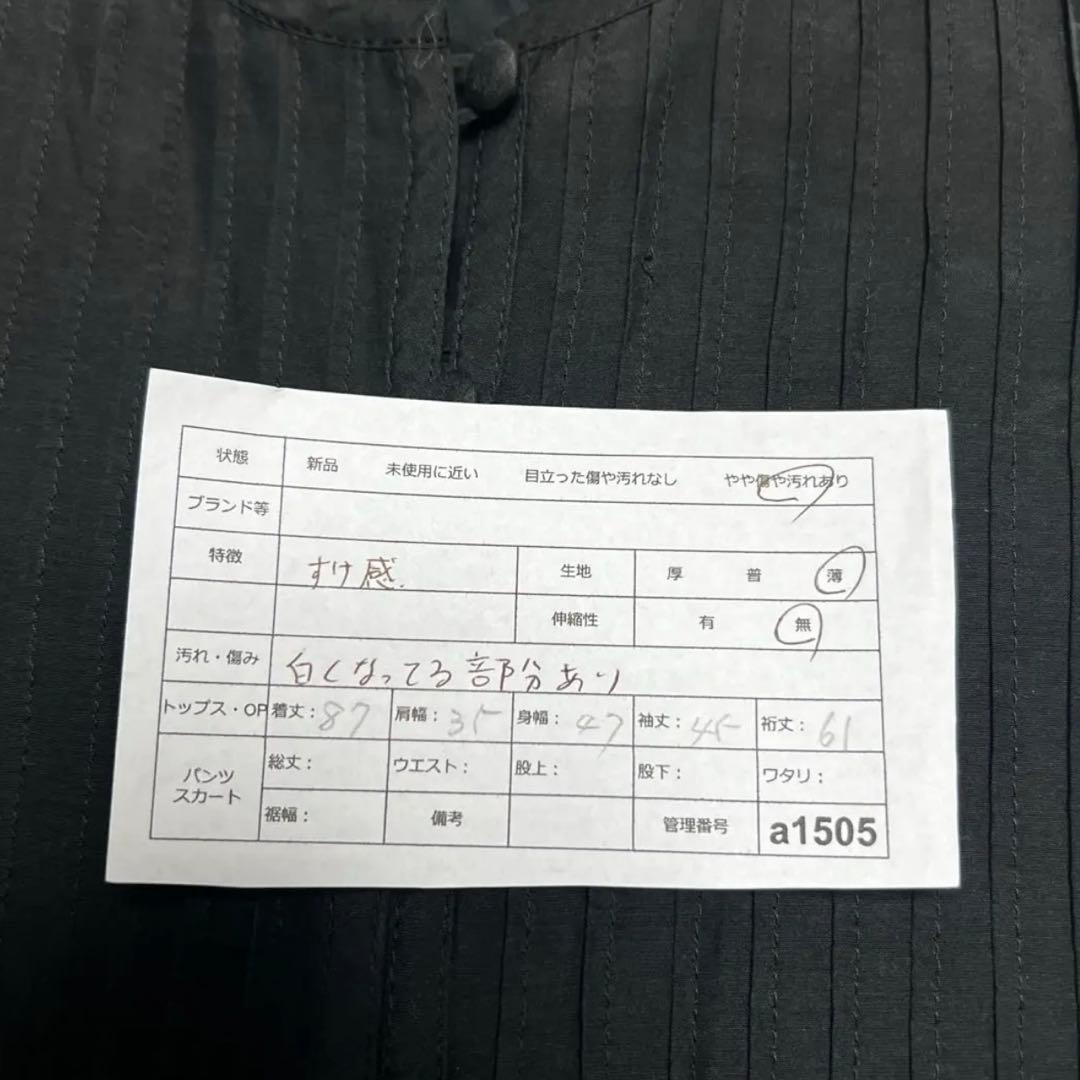 状態 新品 未使用に近い 目立った傷や汚れなし やや傷や汚れあり
ブランド等
特徴 すけ感. 生地 厚 普 薄
伸縮性 有 無
汚れ・傷み 白くなってる部分あり
トップス・OP 着丈：87 肩幅：35 身幅：47 袖丈：45 裄丈：61
パンツ スカート 総丈： ウエスト： 股上： 股下： ワタリ：
裾幅： 備考 管理番号 a1505